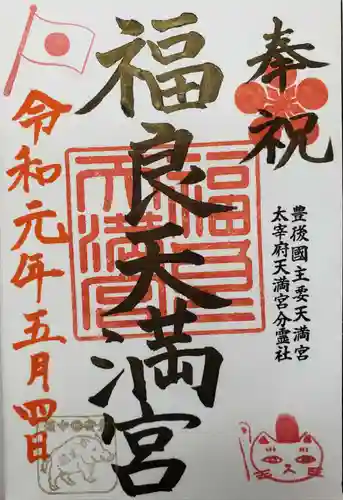 奉祝
豊後國主要天満宮
太宰府天満宮分霊社
福良天満宮
令和元年五月四日